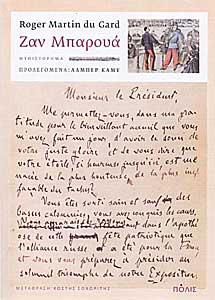 Roger Martin du Gard
Ζαν Μπαρουά
ΜΥΘΙΣΤΟΡΗΜΑ
ΠΡΟΛΕΓΟΜΕΝΑ: ΑΛΜΠΕΡ ΚΑΜΥ
Monsieur le Président,
Me permettez-vous, dans ma gra-
titude pour le bienveillant accueil que vous
m'avez fait un jour, d'avoir le souci de
votre juste gloire et de vous dire que
votre étoile, si heureuse jusqu'ici, est me-
nacée de la plus honteuse, de la plus inef-
façable des taches?
Vous êtes sorti sain et sauf des
basses calomnies, vous avez conquis les cœurs.
dans l'apothé-
ose de cette fête patriotique que
l'alliance russe a été pour la
et vous vous préparez à présider au
solennel triomphe de notre Exposition
ΜΕΤΑΦΡΑΣΗ ΚΩΣΤΗΣ ΣΩΧΩΡΙΤΗΣ
ΠΟΛΙΣ